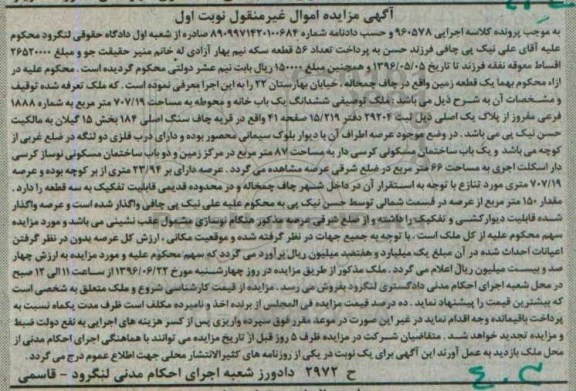 آگهی مزایده اموال غیرمنقول نوبت اول
به موجب پرونده کلاسه اجرایی ۹۶۰۵۷۸ و حسب دادنامه شماره ۸۹۰۹۹۷۱۴۲۰۱۰۰۶۸۴ صادره از شعبه اول دادگاه حقوقی لنگرود محکوم
علیه آقای علی نیک پی چافی فرزند حسن به پرداخت تعداد ۵۶ قطعه سکه نیم بهار آزادی له خانم منیر حقیقت جو و مبلغ ۲۶۵۲۰۰۰۰
اقساط معوقه نفقه فرزند تا تاریخ ۱۳۹۶/۰۵/۰۵ و همچنین مبلغ ۱۵۰۰۰۰ ریال بابت نیم عشر دولتی محکوم گردیده است. محکوم علیه در
ازاء محکوم بهما یک قطعه زمین واقع در چاف چمخاله، خیابان بهارستان ۲۲ را به این اجرا معرفی نموده است. که ملک تعرفه شده توقیف
و مشخصات آن به شرح ذیل می باشد: ملک توصیفی ششدانگ یک باب خانه و محوطه به مساحت ۷۰۷/۱۹ متر مربع به شماره ۱۸۸۸
فرعی مفروز از پلاک یک اصلی ذیل ثبت ۲۹۲۰۴ دفتر ۱۵/۲۱۹ صفحه ۴۱ واقع در قریه چاف سنگ اصلی ۱۸۴ بخش ۱۵ گیلان به مالکیت
حسن نیک پی می باشد. در وضع موجود عرصه اطراف آن با دیوار بلوک سیمانی محصور بوده و دارای درب فلزی دو لنگه در ضلع غربی از
کوچه می باشد و یک باب ساختمان مسکونی کرسی دار به مساحت ۸۷ متر مربع در مرکز زمین و دو باب ساختمان مسکونی نوساز کرسی
دار اسکلت اجری به مساحت ۶۶ متر مربع در ضلع شرقی عرصه مشاهده می گردد. عرصه دارای بر ۲۳/۹۴ متری از بر کوچه بوده و عرصه
۷۰۷/۱۹ متری مورد تنازع با توجه به استقرار آن در داخل شهر چاف چمخاله و در محدوده قدیمی قابلیت تفکیک به سه قطعه را دارد.
مقدار ۱۵۰ متر مربع از عرصه در قسمت شمالی توسط حسن نیک پی به محکوم علیه علی نیک پی چافی واگذار شده است و عرصه واگذار
شده قابلیت دیوارکشی و تفکیک را داشته و از ضلع شرقی عرصه مذکور هنگام نوسازی مشمول عقب نشینی می باشد و مورد مزایده
سهم محکوم علیه از کل ملک است. با توجه به جمیع جهات در نظر گرفته شده و موقعیت مکانی، ارزش کل عرصه بدون در نظر گرفتن
اعیانات احداث شده در آن مبلغ یک میلیارد و هفتصد میلیون ریال برآورد می گردد که سهم محکوم علیه و مورد مزایده به ارزش چهار
صد و بیست میلیون ریال اعلام می گردد. ملک مذکور از طریق مزایده در روز چهارشنبه مورخ ۱۳۹۶/۰۶/۲۲ از ساعت ۱۱ الی ۱۲ صبح
در محل شعبه اجرای احکام مدنی دادگستری لنگرود بفروش می رسد. مزایده از قیمت کارشناسی شروع و ملک متعلق به شخصی است
که بیشترین قیمت را پیشنهاد نماید. ده درصد قیمت مزایده فی المجلس از برنده اخذ و نامبرده مکلف است ظرف مدت یکماه نسبت به
پرداخت باقیمانده وجه اقدام نماید در غیر این صورت در موعد مقرر فوق سپرده واریزی پس از کسر هزینه های اجرایی به نفع دولت ضبط
و مزایده تجدید خواهد شد. متقاضیان شرکت در مزایده ظرف ۵ روز قبل از تاریخ مزایده می توانند با هماهنگی اجرای احکام مدنی از
محل ملک بازدید به عمل آورند این آگهی برای یک نوبت در یکی از روزنامه های کثیرالانتشار محلی جهت اطلاع عموم درج می گردد.
ح ۲۹۷۲ دادورز شعبه اجرای احکام مدنی لنگرود - قاسمی